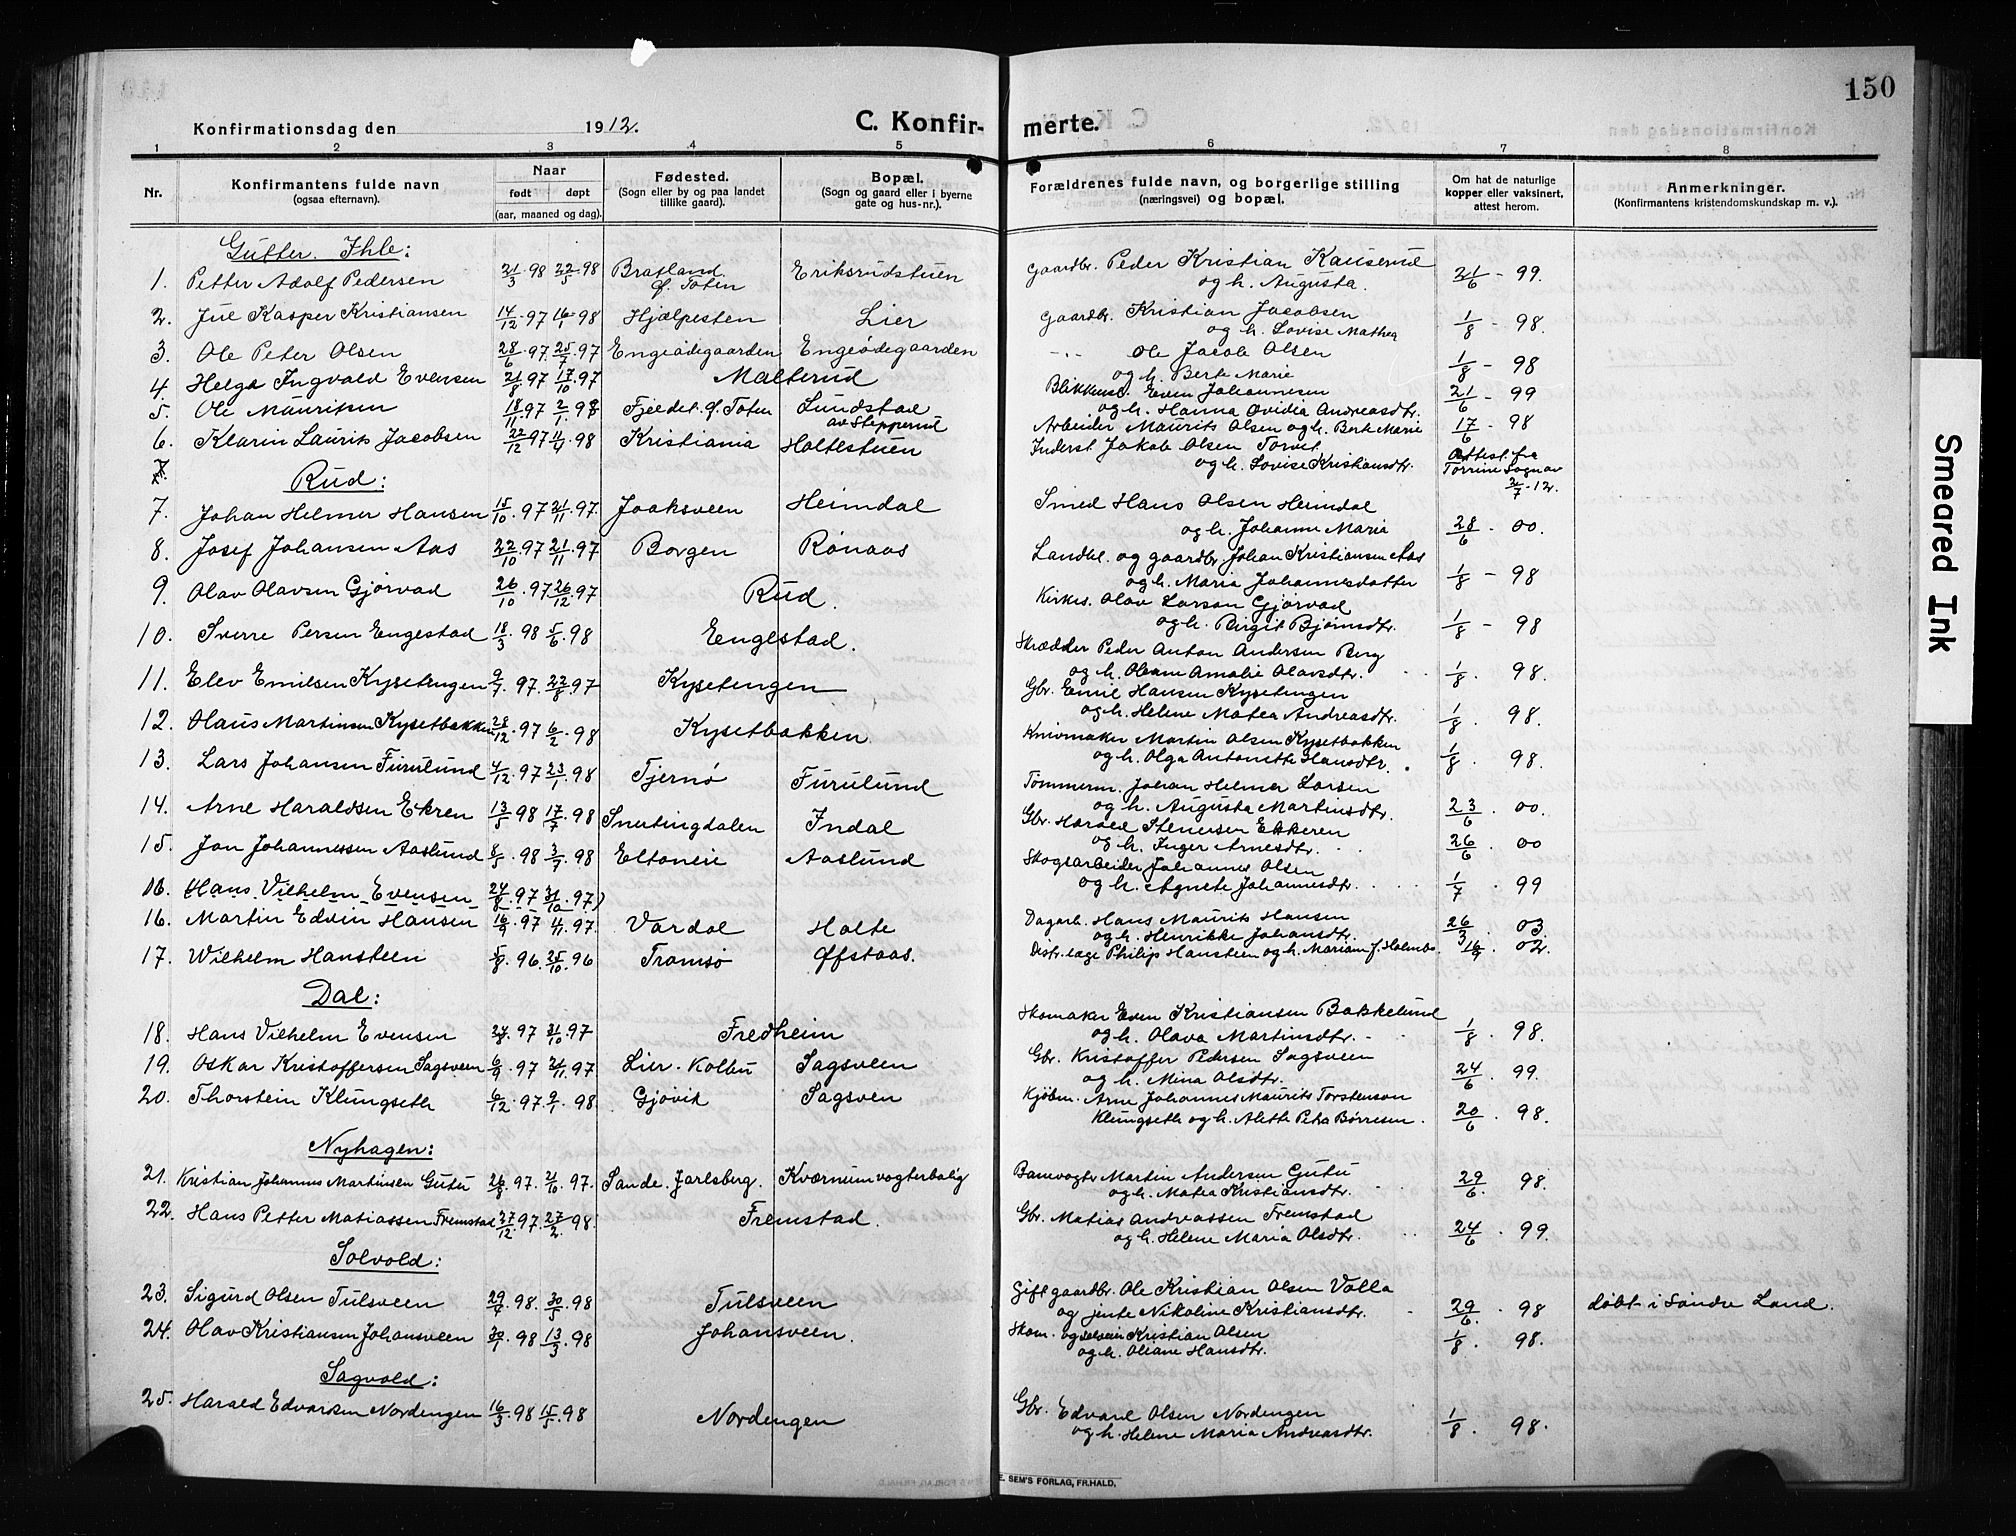 150
Konfirmationsdag den 1912. C. Konfirmerte.
1 2 3 4 5 6 7 8
Nr. Konfirmantens fulde navn (ogsaa efternavn). Naar født døpt (aar, maaned og dag). Fødested. (Sogn eller by og paa landet tillike gaard). Bopæl. (Sogn og gaard eller i byerne gate og hus-nr.). Forældrenes fulde navn, og borgerlige stilling (næringsvei) og bopæl. Om hat de naturlige kopper eller vaksinert, attest herom. Anmerkninger. (Konfirmantens kristendomskundskap m. v.).
Gutter. Ihle:
1. Petter Adolf Pedersen 21/3 98 22/5 98 Bratland Ø. Toten Eriksrudstuen Gaardbr. Peder Kristian Kauserud og h. Augusta. 21/6 - 99.
2. Jul Kasper Kristiansen 14/12 97 16/1 98 Hjælpesten Lier Gaardbr. Kristian Jacobsen og h. Lovise Mathea 1/8 - 98.
3. Ole Peter Olsen 28/6 97 25/7 97 Engeødegaarden Engeødegaarden -"- Ole Jacob Olsen og h. Berte Marie 1/8 - 98
4. Helge Ingvald Evensen 21/8 97 17/10 97 Malterud Blikkensl. Even Johannesen og h. Hanna Ovidia Andreasdtr. 21/6 - 99
5. Ole Mauritsen 18/11 97 2/1 98 Fjeldet Ø. Toten Lundstad av Stepperud Arbeider Maurits Olsen og h. Berte Marie 17/6 - 98
6. Klarin Laurits Jacobsen 22/12 97 11/4 98 Kristiania Holtestuen Inderst Jakob Olsen Torvet og h. Lovise Kristiansdtr. Attest fra Sogn av 2/7 - 12.
7. Rud:
7. Johan Helmer Hansen 15/10 97 21/11 97 Jaaksveen Heimdal Smed Hans Olsen Heimdal og h. Johanne Maria 28/6 - 00.
8. Josef Johansen Aas 22/10 97 21/11 97 Borgen Rønaas Landh. og gaardbr Johan Kristiansen Aas og h. Maria Johannesdatter 1/8 - 98
9. Olav Olavsen Gjørvad 26/10 97 26/12 97 Rud. Kirkes. Olav Larson Gjørvad og h. Birgit Bjørnsdtr. 1/8 - 98
10. Sverre Persen Engestad 18/3 98 5/6 98 Engestad. Skrædder Peder Anton Andersen Berg og h. Oleane Amalie Olavsdtr. 1/8 98.
11. Elev Emilsen Kysetengen 9/7 97. 22/8 97 Kysetengen Gbr. Emil Hansen Kysetengen og h. Helene Matea Andreasdtr. 1/8 98.
12. Hans Martinsen Kysetbakken 28/12 97 6/2 98 Kysetbakken Knivmaker Martin Olsen Kysetbakken og h. Olga Antonette Hansdtr. 1/8 98.
13. Lars Johansen Furulund 4/12 97 23/1 98 Tjernø Furulund Tømmerm. Johan Helmer Larsen og h. Augusta Martinsdtr. 23/6 00.
14. Arne Haraldsen Ekren 13/5 98 17/7 98 Snertingdalen Indal Gbr. Harald Stenersen Ekkeren og h. Inger Arnesdtr. 26/6 00
15. Jon Johannessen Aaslund 8/5 98 3/7 98 Eltoneie Aaslund Skogsarbeider Johannes Olsen og h. Agnete Johannesdtr. 1/7 99
(16. Hans Vilhelm Evensen 24/8 97 31/10 97)
16. Martin Edvin Hansen 16/9 97 4/11 97. Vardal Holte Dagarb. Hans Maurits Hansen og h. Henrikke Johansdtr. 26/3 03.
17. Wilhelm Hansteen 5/8 96. 25/10 96 Tromsø Øfstaas. Distr. læge Philip Hansteen og h. Mariam f. Holmbo. 16/9 02.
Dal:
18. Hans Vilhelm Evensen 24/8 97 31/10 97 Fredheim Skomaker Even Kristiansen Bakkelund og h. Olava Martinsdtr. 1/8 98.
19. Oskar Kristoffersen Sagsveen 6/9 97 21/11 97 Lier. Kolbu Sagsveen Gbr. Kristoffer Pedersen Sagsveen og h. Mina Olsdtr. 24/6 99.
20. Thorstein Klungseth 6/12 97 9/1 98 Gjøvik Sagsven Kjøbm. Arne Johannes Maurits Torstenson Klungseth og h. Alette Petra Børresen. 20/6 98.
Nyhagen:
21. Kristian Johannes Martinsen Gutu 26/8 97. 2/10 97. Sande. Jarlsberg. Kværnumvogterbolig Banevogter Martin Andersen Gutu og h. Matea Kristiansdtr. 29/6 98.
22. Hans Petter Matiassen Fremstad 27/12 97. 27/2 98. Fremstad. Gbr. Matias Andreassen Fremstad og h. Helene Maria Olsdtr. 24/6 99.
Solvold:
23. Sigurd Olsen Tulsveen 29/7 98. 30/5 98 Tulsveen Gift gaardbr. Ole Kristian Olsen Valla og jente Nikoline Kristiansdtr. 29/6 98 døbt i Søndre Land.
24. Olav Kristiansen Johansveen 30/1 98 13/3 98 Johansveen. Skom. og Kristian Olsen og h. Oleane Hansdtr. 1/8 98.
Sagvold:
25. Harald Edvardsen Nordengen 16/3 98 15/5 98 Nordengen Gbr. Edvard Olsen Nordengen og h. Helene Maria Andreasdtr. 1/8 98.
E. SEM'S FORLAG, FR.HALD.
Smeared Ink